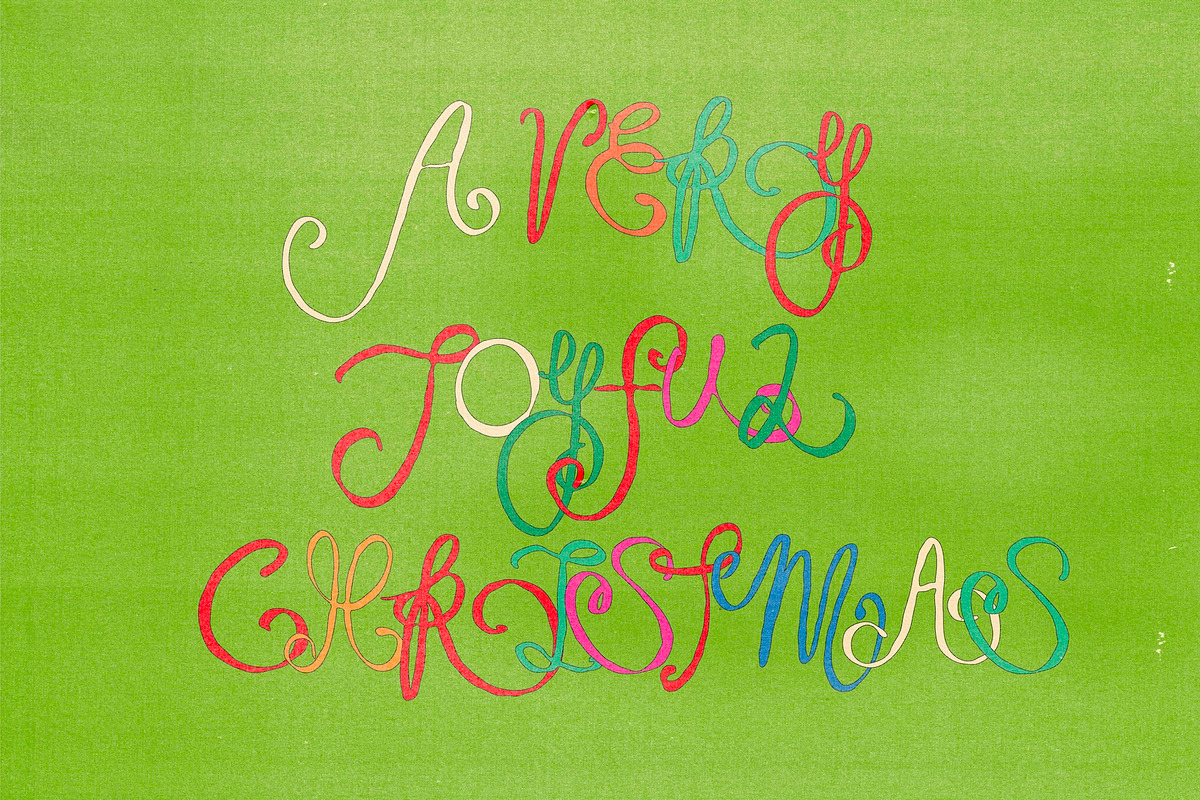 A VERY
JOYFUL
CHRISTMAS